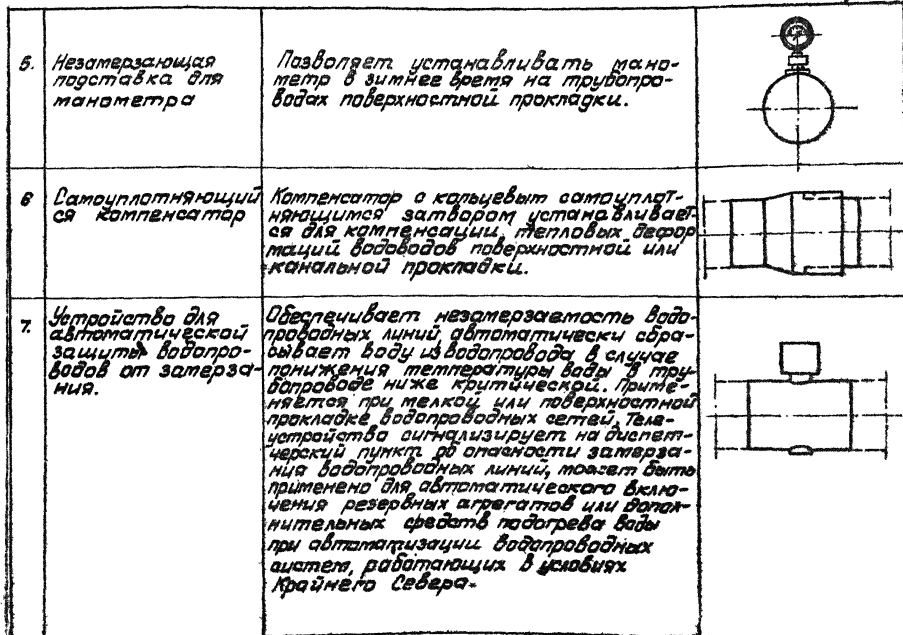 5. Незамерзающая подставка для манометра
Позволяет устанавливать мано-
метр в зимнее время на трубопро-
водах поверхностной прокладки.
6 Самоуплотняющий
ся компенсатор
Компенсатор с кольцевым самоуплот-
няющимся затвором устанавливает-
ся для компенсации тепловых дефор
маций водоводов поверхностной или
канальной прокладки.
7. Устройство для
автоматической
защиты водопро-
водов от замерза-
ния.
Обеспечивает незамерзаемость водо-
проводных линий, автоматически сбра-
сывает воду из водопровода в случае
понижения температуры воды в тру-
бопроводе ниже критической. Приме-
няется при мелкой или поверхностной
прокладке водопроводных сетей. Теле-
устройство сигнализирует на диспет-
черский пункт об опасности замерза-
ния водопроводных линий, может быть
применено для автоматического включе-
ния резервных агрегатов или допол-
нительных средств подогрева воды
при автоматизации водопроводных
систем, работающих в условиях
Крайнего Севера.